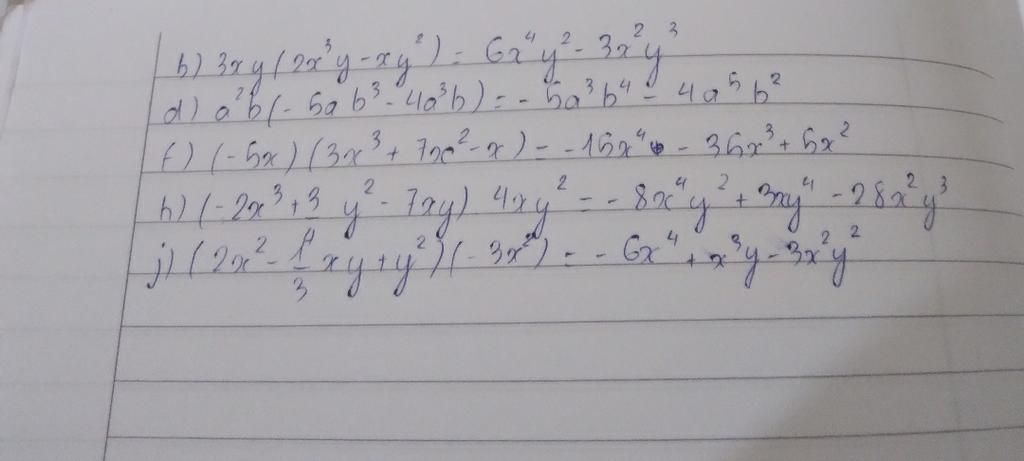 b) 3xy(2x³y-xy²) = 6x⁴y² - 3x²y³
d) a²b(-5ab³ - 4a³b) = -5a³b⁴ - 4a⁵b²
f) (-5x)(3x³ + 7x² - x) = -15x⁴ - 35x³ + 5x²
h) (-2x³ + 3/4 y² - 7xy) 4xy² = -8x⁴y² + 3xy⁴ - 28x²y³
j) (2x² - 1/3 xy + y²)(-3x²) = -6x⁴ + x³y - 3x²y²